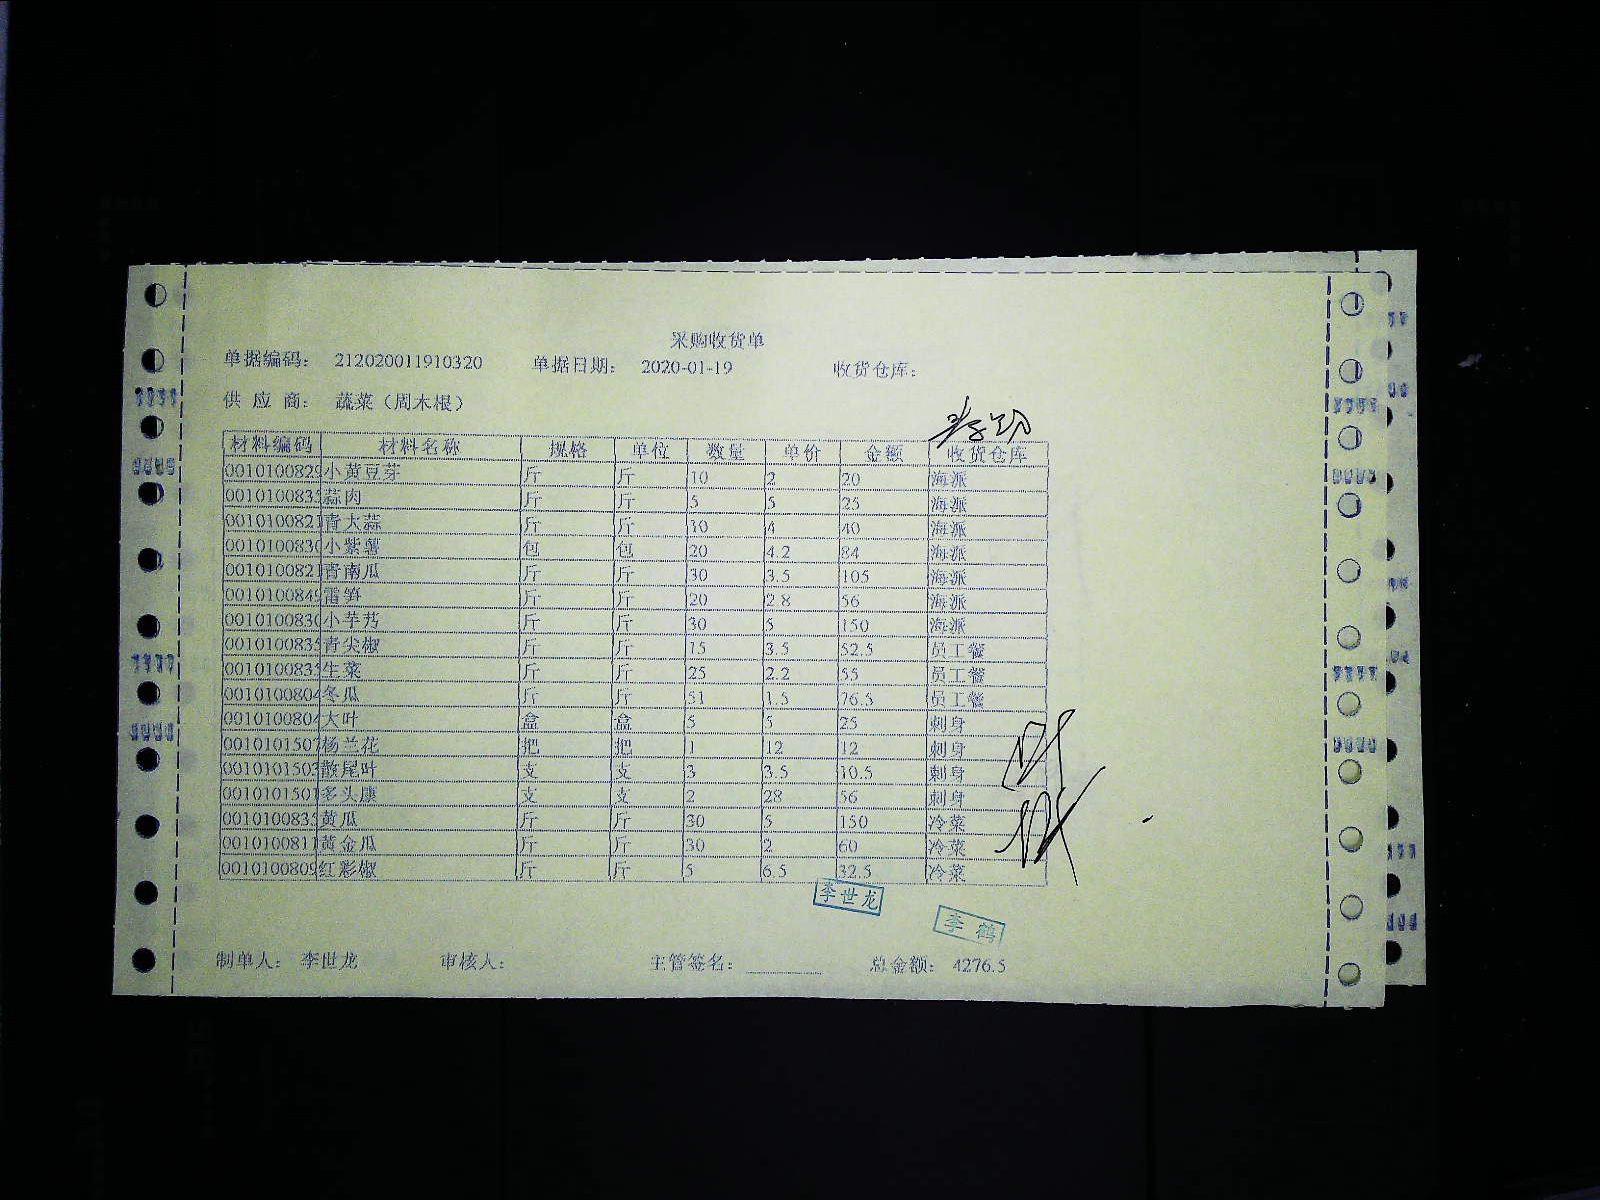 采购收货单
单据编码： 212020011910320 单据日期： 2020-01-19 收货仓库：
供 应 商： 蔬菜（周木根）
材料编码 材料名称 规格 单位 数量 单价 金额 收货仓库
0010100829 小黄豆芽 斤 斤 10 2 20 海派
001010083 蒜肉 斤 斤 5 5 25 海派
001010082 青大蒜 斤 斤 10 4 40 海派
001010083 小紫薯 包 包 20 4.2 84 海派
001010082 青南瓜 斤 斤 30 3.5 105 海派
001010084 雷笋 斤 斤 20 2.8 56 海派
001010083 小芋艿 斤 斤 30 5 150 海派
001010083 青尖椒 斤 斤 15 3.5 52.5 员工餐
001010083 生菜 斤 斤 25 2.2 55 员工餐
001010080 冬瓜 斤 斤 51 1.5 76.5 员工餐
001010080 大叶 盒 盒 5 5 25 刺身
001010150 杨兰花 把 把 1 12 12 刺身
001010150 散尾叶 支 支 3 3.5 10.5 刺身
001010150 多头康 支 支 2 28 56 刺身
001010083 黄瓜 斤 斤 30 5 150 冷菜
001010081 黄金瓜 斤 斤 30 2 60 冷菜
001010080 红彩椒 斤 斤 5 6.5 32.5 冷菜
李世龙
李鹤
制单人： 李世龙 审核人： 主管签名： 总金额： 4276.5